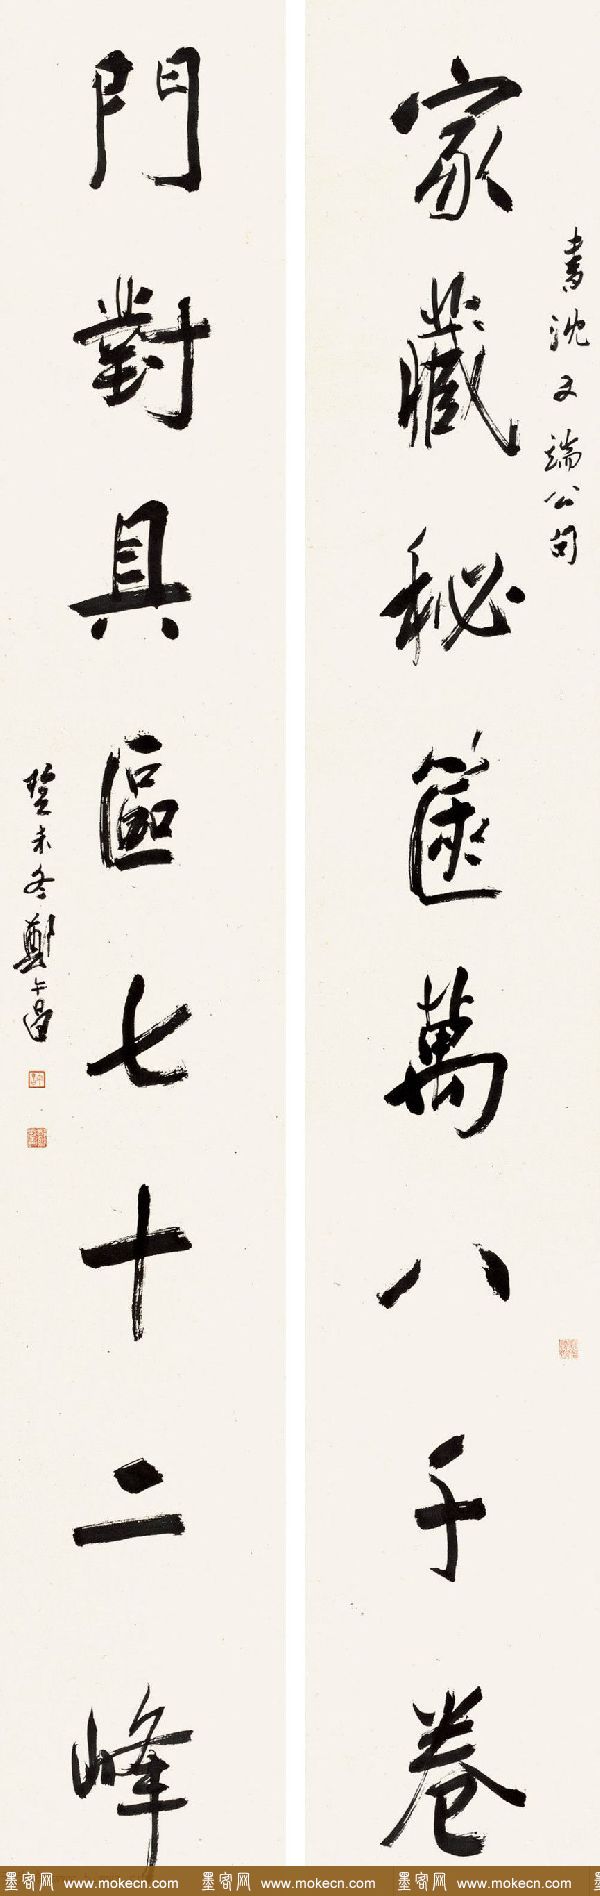 書沈文端公句
家藏秘篋萬八千卷
門對具區七十二峰
癸未冬鄭午昌
墨客网 www.mokecn.com 墨客网 www.mokecn.com 墨客网 www.mokecn.com 墨客